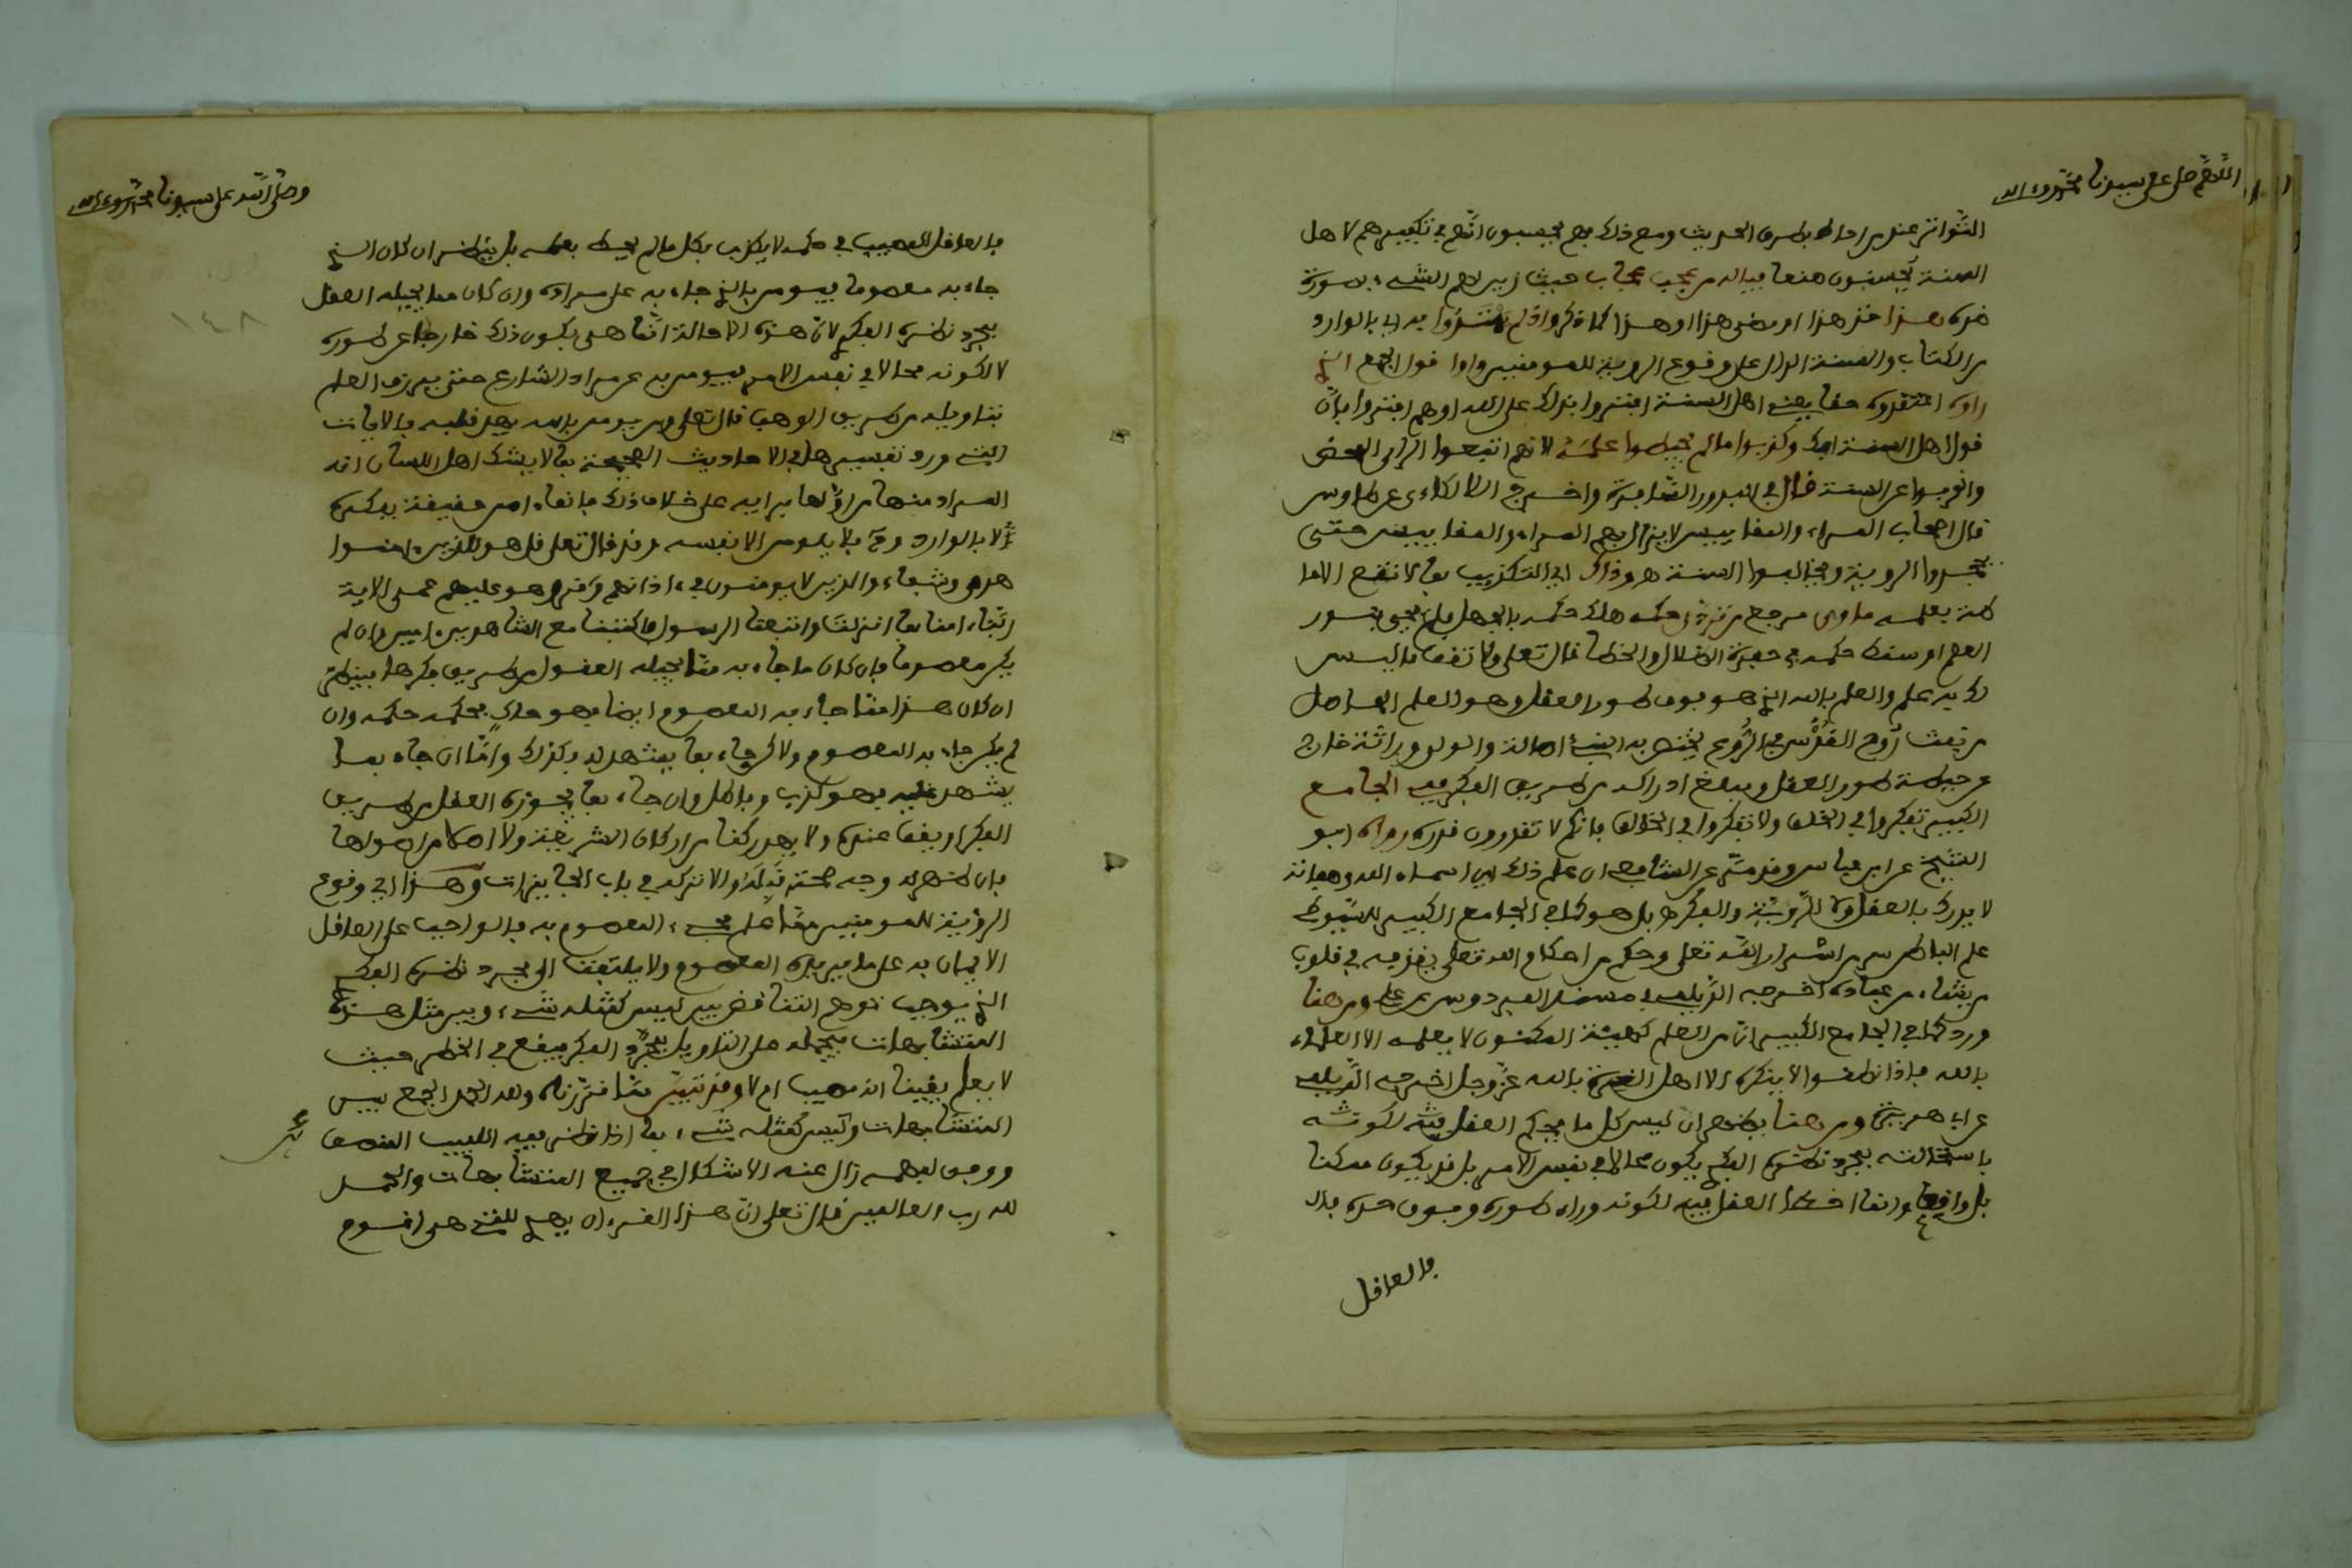 اللهم صل على سيدنا محمد وءاله
التواتر عند من احاط بطرق الحديث ومع ذلك فهم يحسبون انهم في تكفيرهم لاهل
السنة يحسنون صنعا فياله من عجب عجاب حيث زين لهم الشيء بصورة
ضده بهذا
من الكتاب والسنة الدال على وقوع الرؤية للمومنين
حقا يعني اهل السنة افتروا بذلك على الله اوهم افتروا بان
قول اهل السنة افك وكذبوا بما لم يحيطوا بعلمه لانهم اتبعوا الراي المحض
وانحرفوا عن السنة قال في البدور السافرة واخرج اللالكاءى عن طاوس
قال اصحاب المراء والمقاييس لا يزال بهم المراء والمقاييس حتى
يجحدوا الروية ويخالفوا السنة هو وذاك اي التكذيب بما لا تقع الاحا
طة بعلمه
العلم او سقط حكمه في حفرة الضلال والخطا قال تعلى ولا تقف ما ليس
لك به علم والعلم بالله الذي هو فوق طور العقل وهو العلم الحاصل
من نفث روح القدس في الروع يختص به النبي اصالة والولي وراثة خارج
عن حيطة طور العقل ومبلغ ادراكه من طريق الفكر ففي الجامع
الكبير تفكروا في الخلق ولا تفكروا في الخالق فانكم لا تقدرون قدره رواه ابو
الشيخ عن ابن عباس وقد مر عن الشافعي ان علم ذلك اي اسماء الله وصفاته
لا يدرك بالعقل ولا الروية والفكر بل هو كما في الجامع الكبير للسيوطي
علم الباطن سر من اسرار الله تعلى وحكم من احكام الله تعلى يقذفه في قلوب
من يشاء من عباده اخرجه الديلمي في مسند الفردوس عن علي ومن هنا
ورد كما في الجامع الكبير ان من العلم كهيئة المكنون لا يعلمه الا العلماء
بالله فاذا نطقوا لا ينكره الا اهل الغرة بالله عز وجل اخرجه الديلمي
عن ابي هريرة ومن هنا يظهر ان ليس كل ما يحكم العقل فيه لكونه
باستحالته بمجرد نظره الفكري يكون محالا في نفس الامر بل قد يكون ممكنا
بل واقعا وانما اخطا العقل فيه لكونه وراء طوره وفوق حده
فالعاقل
وصلى الله على سيدنا محمد وءاله
١٤٨
فالعاقل المصيب في حكمه لا يكذب بكل ما لم يحيط بعلمه بل ينظر ان كان الذي
جاء به معصوما فيومن بالذي جاء به على مراده وان كان مما يحيله العقل
بمجرد نظره الفكري لان هذه الاحالة انما هي بكون ذلك خارجا عن طوره
لا لكونه محالا في نفس الامر فيومن به على مراد الشارع حتى يرزق العلم
بتاويله من طريق الوهب قال تعلى ومن يومن بالله يهد قلبه فالايات
التي ورد تفسيرها في الاحاديث الصحيحة بما لا يشك اهل اللسان انه
المراد منها من اولها برايه على خلاف ذلك فانما امن حقيقة بفكره
لا بالوارد ومن لا يلومن الا نفسه وقد قال تعلى قل هو للذين ءامنوا
هدى وشفاء والذين لا يومنون في ءاذانهم وقر وهو عليهم عمى الاية
ربنا ءامنا بما انزلت واتبعنا الرسول فاكتبنا مع الشاهدين ءامين وان لم
يكن معصوما فان كان ما جاء به مما تحيله العقول من طريق فكرها فينظر
ان كان هذا مما جاء به المعصوم ايضا فهو حاكٍ فحكمه حكمه وان
لم يكن جاء به المعصوم ولا كن جاء بما يشهد له فكذلك واما ان جاء بما
يشهد عليه فهو كذب وباطل وان جاء بما يجوزه العقل من طريق
الفكر او يقف عنده ولا يهد ركنا من اركان الشريعة ولا اصلا من اصولها
فان ظهر له وجه صحته قبله والا تركه في باب الجائزات وهذا اي وقوع
الرؤية للمومنين مما علم مجيء المعصوم به فالواجب على العاقل
الايمان به على ما يريده المعصوم ولا يلتفت الى مجرد نظره الفكري
الذي يوجب توهم التناقض بين ليس كمثله شيء وبين مثل هذه
المتشابهات فيحمله على التاويل بمجرد الفكر فيقع في الخطر حيث
لا يعلم يقينا انه مصيب ام لا وقد تبين مما قررناه ولله الحمد الجمع بين
المتشابهات وليس كمثله شيء بما اذا نظر فيه اللبيب المنصف
ووفق لفهمه زال عنه الاشكال في جميع المتشابهات والحمد
لله رب العالمين قال تعلى ان هذا القرءان يهدي للتي هي اقوم